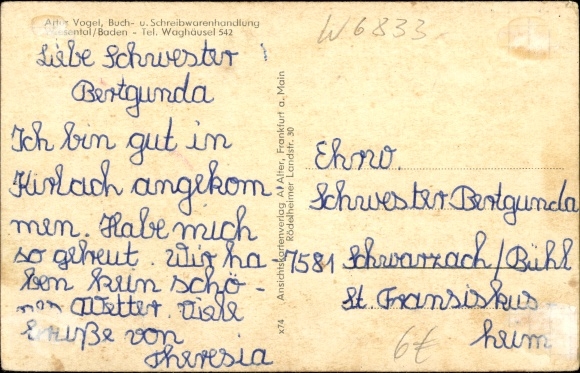 Vogel, Buch- u. Schreibwarenhandlung
Wiesental/Baden - Tel. Waghäusel 542
Liebe Schwester
Bertgunda
Ich bin gut in
Kirlach angekom
men. Habe mich
so gefreut. Wir ha
ben kein schö-
nes Wetter. Viele
Grüße von
Theresia
x74 Ansichtskartenverlag A. Alter, Frankfurt a. Main
Rödelheimer Landstr. 30
W6833
Ehrw.
Schwester Bertgunda
7581 Schwarzach/Bühl
St. Fransiskus
heim
6€